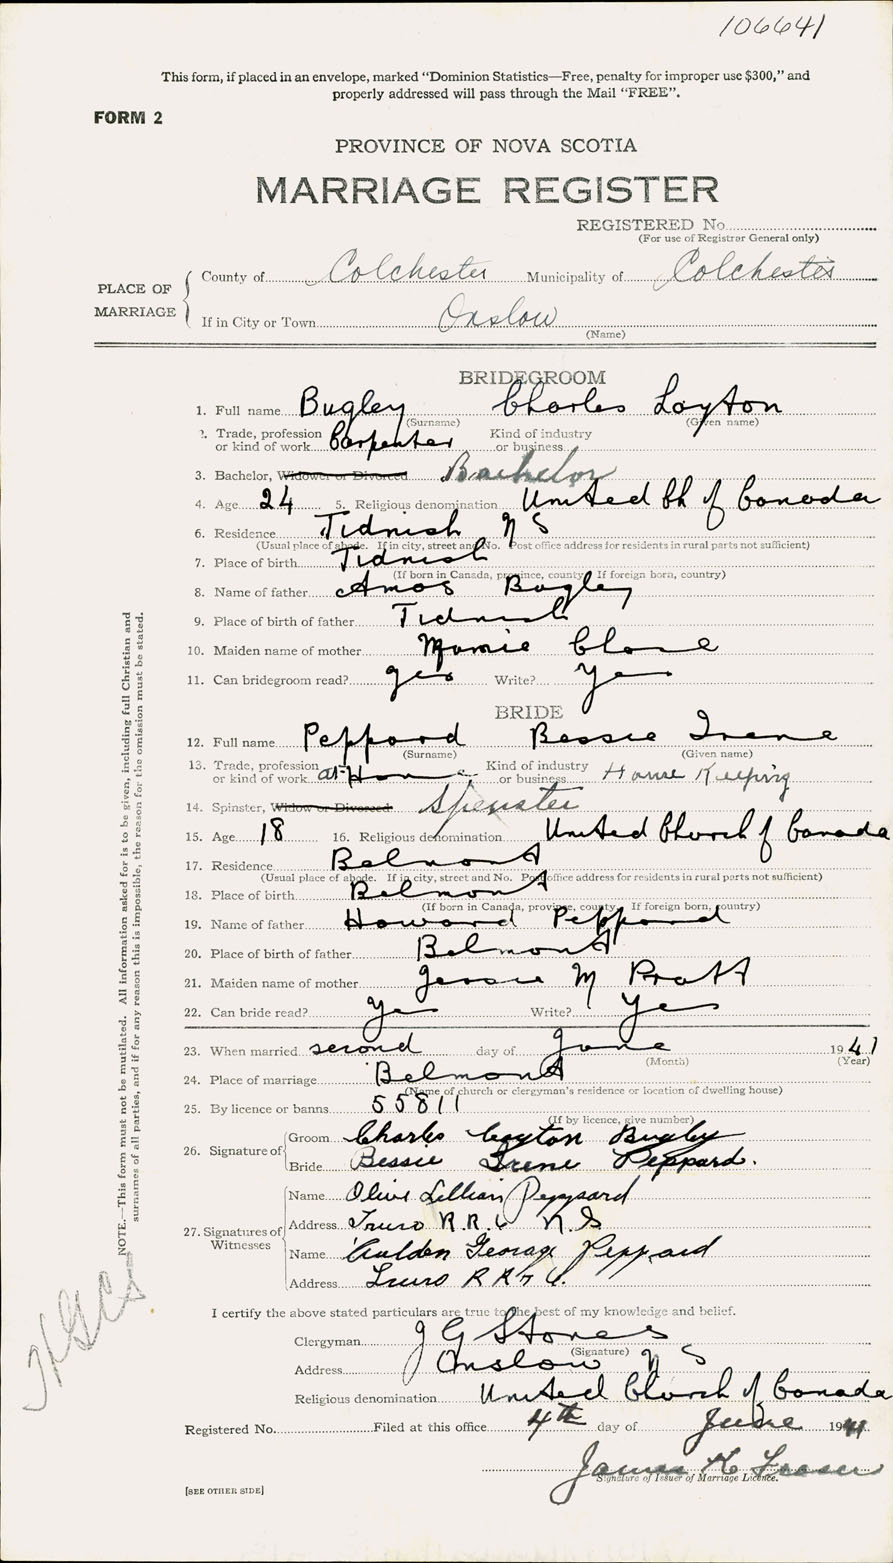 106641
This form, if placed in an envelope, marked "Dominion Statistics—Free, penalty for improper use $300," and
properly addressed will pass through the Mail "FREE".
FORM 2
PROVINCE OF NOVA SCOTIA
MARRIAGE REGISTER
REGISTERED No.
(For use of Registrar General only)
PLACE OF MARRIAGE
County of Colchester Municipality of Colchester
If in City or Town Onslow
(Name)
BRIDEGROOM
1. Full name Bugley Charles Layton
(Surname) (Given name)
2. Trade, profession or kind of work Carpenter Kind of industry or business
3. Bachelor, Widower or Divorced Bachelor
4. Age 24 5. Religious denomination United Ch of Canada
6. Residence Tidnish N S
(Usual place of abode. If in city, street and No. Post office address for residents in rural parts not sufficient)
7. Place of birth Tidnish
(If born in Canada, province, county. If foreign born, country)
8. Name of father Amos Bugley
9. Place of birth of father Tidnish
10. Maiden name of mother Mamie
11. Can bridegroom read? yes Write? Yes
BRIDE
12. Full name Peppard Bessie Irene
(Surname) (Given name)
13. Trade, profession or kind of work at Home Kind of industry or business House Keeping
14. Spinster, Widow or Divorced Spinster
15. Age 18 16. Religious denomination United Church of Canada
17. Residence Belmont
(Usual place of abode. If in city, street and No. Post office address for residents in rural parts not sufficient)
18. Place of birth Belmont
(If born in Canada, province, county. If foreign born, country)
19. Name of father Howard Peppard
20. Place of birth of father Belmont
21. Maiden name of mother Jessie M Pratt
22. Can bride read? Yes Write? Yes
23. When married second day of June 1941
(Month) (Year)
24. Place of marriage Belmont
(Name of church or clergyman's residence or location of dwelling house)
25. By licence or banns 55811
(If by licence, give number)
26. Signature of Groom Charles Layton Bugley
Bride Bessie Irene Peppard.
27. Signatures of Witnesses Name Olive Lillian Peppard
Address Truro R.R. N.S
Name George Peppard
Address Truro R R
I certify the above stated particulars are true to the best of my knowledge and belief.
Clergyman J G Stones
(Signature)
Address Onslow N S
Religious denomination United Church of Canada
Registered No. Filed at this office 4th day of June 1941
James K Fraser
Signature of Issuer of Marriage Licence.
[SEE OTHER SIDE]
NOTE.—This form must not be mutilated. All information asked for is to be given, including full Christian and
surnames of all parties, and if for any reason this is impossible, the reason for the omission must be stated.